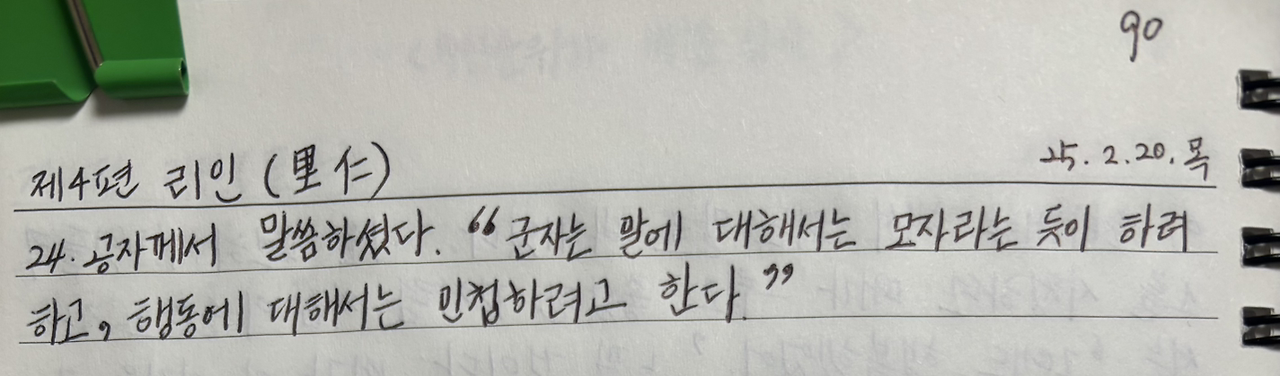 90
제4편 리인 (里仁) 25. 2. 20. 목
24. 공자께서 말씀하셨다. “군자는 말에 대해서는 모자라는 듯이 하려
하고, 행동에 대해서는 민첩하려고 한다.”